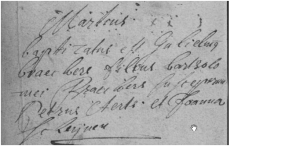 Martius
baptizatus est Guilielmus
braeckers filius bartholo
mei Braeckers susceperunt
Petrus Aerts et Joanna